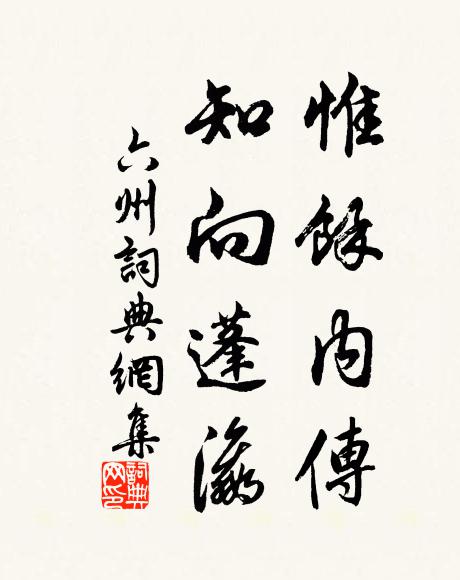 惟餘内傳
知向蓬瀛
六州詞典網集
詞典網印